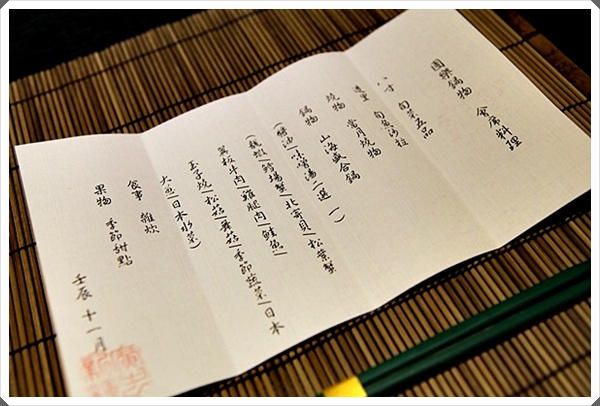 團樂鍋物 會席料理
八寸 旬菜五品
造里 旬魚沙拉
燒物 當月燒物
鍋物 山海盛合鍋
(醬油|味噌湯 二選一)
(龍蝦|鱈場蟹|北寄貝|松葉蟹
萬板牛肉|雞腿肉|鮭魚|
玉子燒|松茸|舞菇|季節蔬菜|日本
大魚|日本水菜)
食事 雜炊
果物 季節甜點
壬辰 十一月